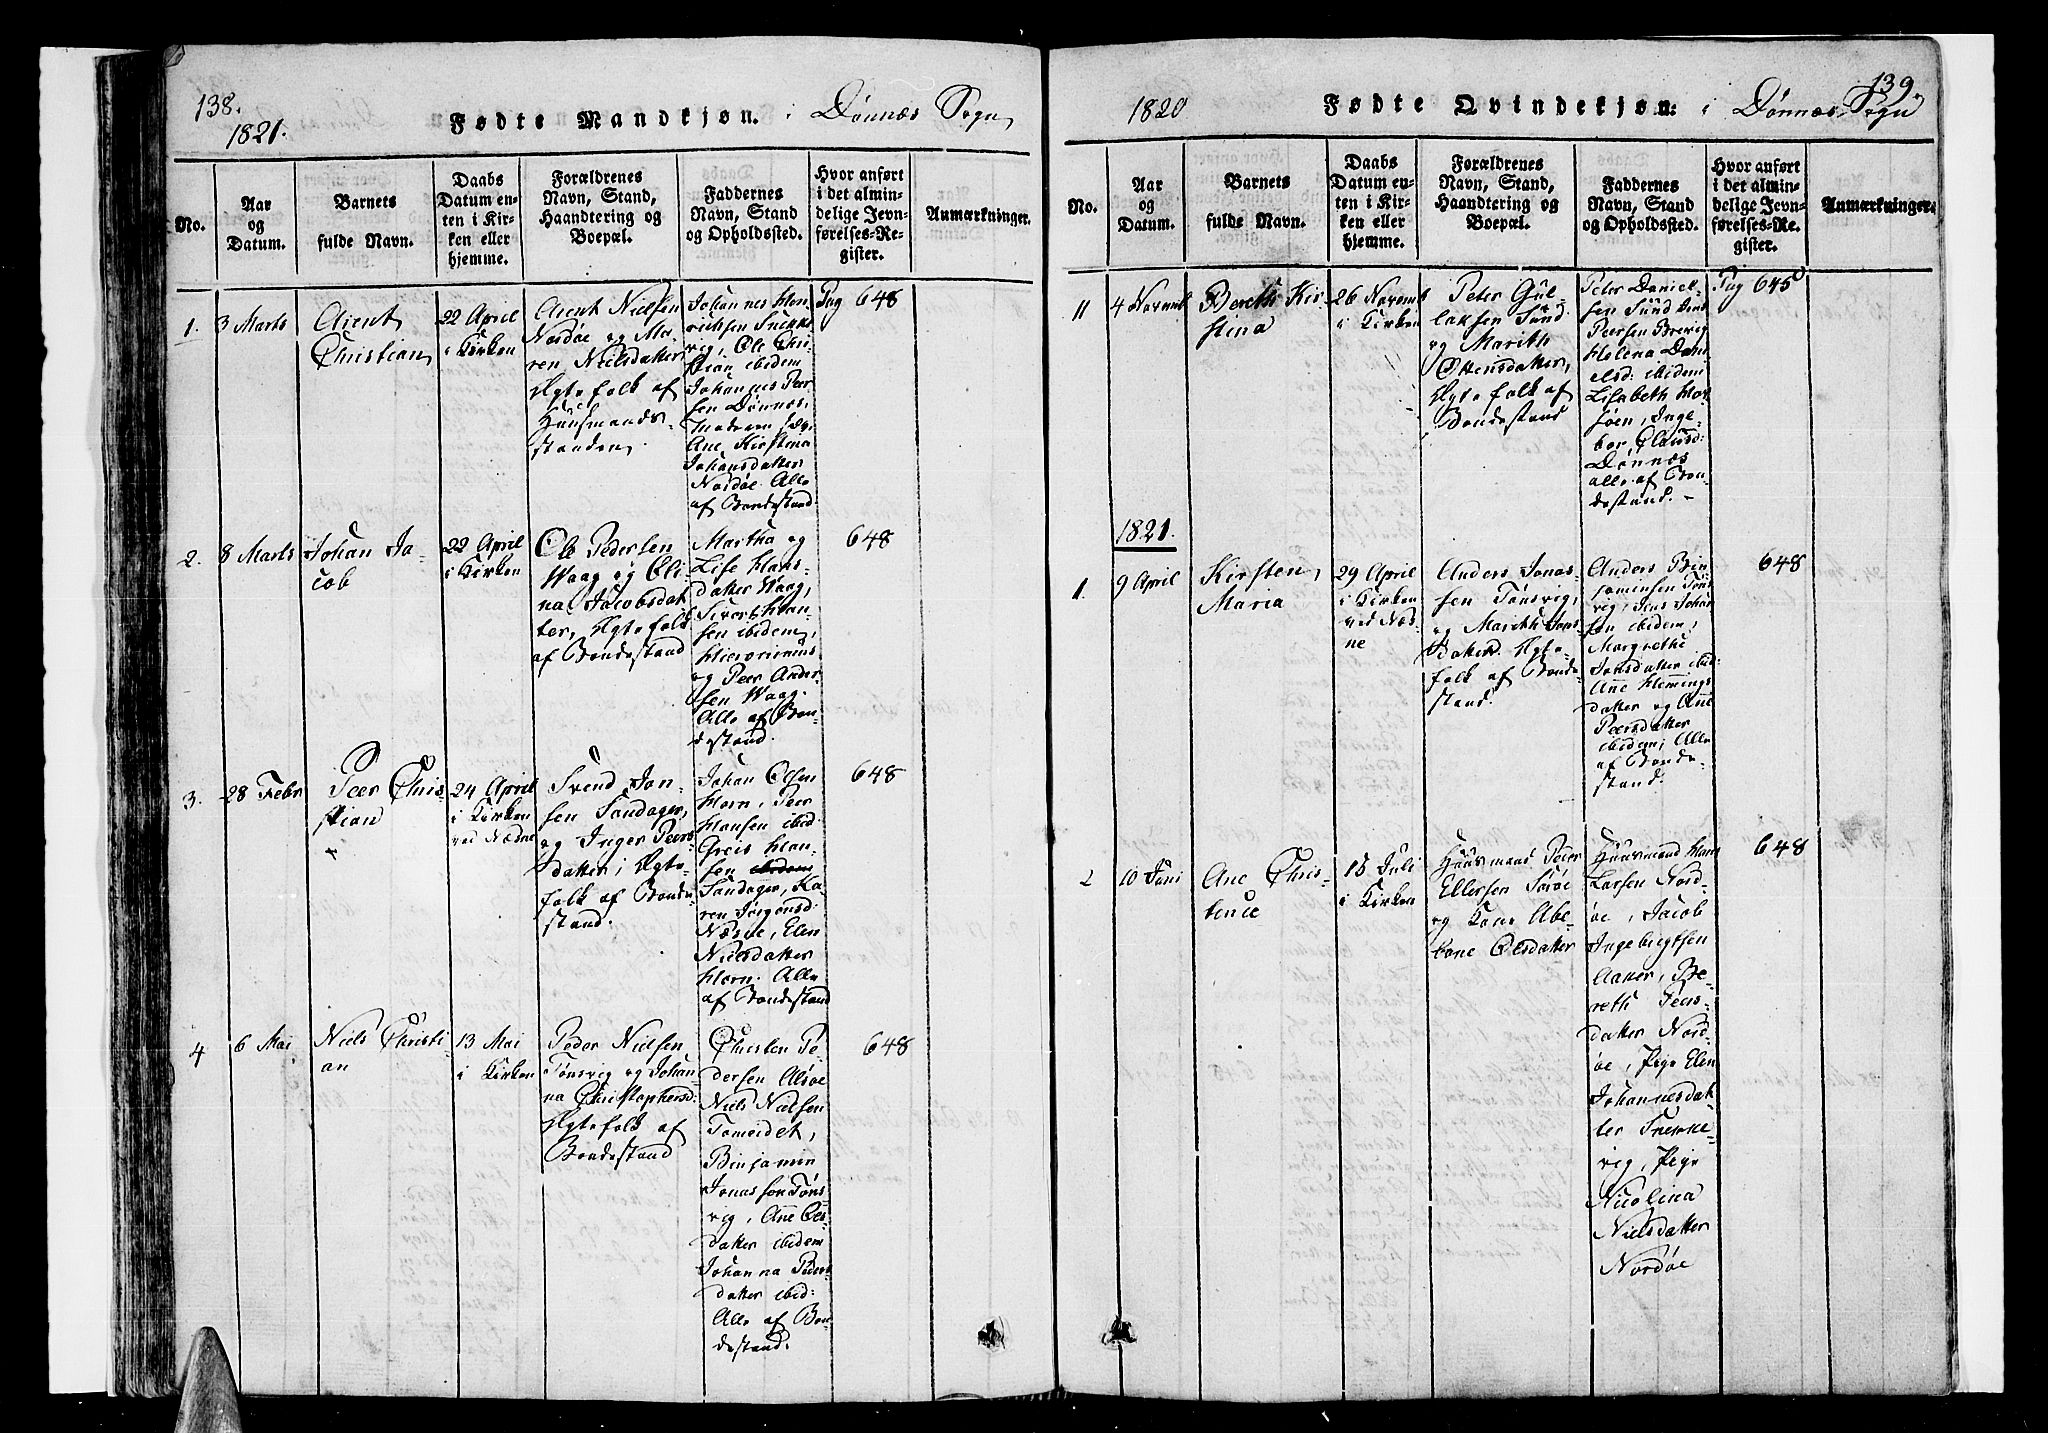 138.
1821.
Fødte Mandkjøn. i Dønnæs Sogn
No.
Aar
og
Datum.
Barnets
fulde Navn.
Daabs
Datum en-
ten i Kir-
ken eller
hjemme.
Forældrenes
Navn, Stand,
Haandtering og
Boepæl.
Faddernes
Navn, Stand
og Opholdssted.
Hvor anført
i det almin-
delige Jevn-
førelses-Re-
gister.
Anmærkninger.
1.
3 Marts
Arent
Christian
22 April
i Kirken
Arent Nielsen
Nordøe og Ma-
ren Nielsdatter
Ægtefolk af
Huusmands
standen
Johannes Hen-
richsen Snekke
vig, Ole Chri-
stian ibidem
Johannes Peer
sen Dønnæs,
Ane Kirstina
Johansdatter
Nordøe. Alle
af Bondestand
Pag 648
2.
8 Marts
Johan Ja-
cob
22 April
i Kirken
Ole Pedersen
Waag og Eli-
na Jacobsdat
ter, Ægtefolk
af Bondestand
Martha og
Lise Hans-
datter Waag,
Sivert Han-
sen ibidem,
Hieronimus
og Peer Ander
sen Waag.
Alle af Bon-
destand.
648
3.
28 Febr
Peer Chris-
stian
24 April
i Kirken
ved Næsne
Svend Jon-
sen Sandager,
og Inger Peers
datter, Ægte-
folk af Bonde-
stand.
Johan Olsen
Horn, Peer
Hansen ibid:
Greis Han-
sen ibidem
Sandager, Ka-
ren Jørgensd:
Næsne, Elen
Nielsdatter
Horn. Alle
af Bondestand
648
4
6 Mai
Niels Christi-
an
13 Mai
i Kirken
Peder Nielsen
Tønsvig og Johan-
na Christophersd:
Ægtefolk af
Bondestand
Christen Pe-
dersen Alsøe
Niels Nielsen
Tomeidet,
Binjamin
Jonassen Tøns
vig, Ane Ols-
datter ibidem
Johanna Peders
datter ibid:
Alle af Bon-
destand.
648
139.
1820
Fødte Qvindekjøn: i Dønnæs Sogn
No.
Aar
og
Datum.
Barnets
fulde Navn.
Daabs
Datum en-
ten i Kir-
ken eller
hjemme.
Forældrenes
Navn, Stand,
Haandtering og
Boepæl.
Faddernes
Navn, Stand
og Opholdssted.
Hvor anført
i det almin-
delige Jevn-
førelses-Re-
gister.
Anmærkninger.
11
4 Novemb
Bereth Kir-
stina
26 Novemb
i Kirken
Peter Gul-
laksen Sund
og Marith
Ottensdatter,
Ægtefolk af
Bondestand
Peter Daniel-
sen Sund
Peersen Brevig
Helena Dani-
elsd: ibidem
Lisabeth
Inge-
bor Clausd:
Dønnæs
alle af Bon-
destand. -
Pag 645
1821.
1.
9 April
Kirsten
Maria
29 April
i Kirken
ved Næs-
ne
Anders Jonas-
sen Tønsvig,
og Marith Jons-
datter. Ægte-
folk af Bonde-
stand.
Anders Bin-
jaminsen Tøns
vig, Jens Johan
sen ibidem,
Margrethe
Jonsdatter ibid:
Ane Flemings
datter og Ane
Peersdatter
ibidem, Alle
af Bonde-
stand.
648
2
10 Juni
Ane Chris-
tence
15 Juli
i Kirken
Huusmand Peer
Ellersen Sørøe
og Kone Abe-
lone Olsdatter
Huusmand Hans
Larsen Nord-
øe, Jacob
Ingebrigtsen
Aaker, Be-
reth Peers-
datter Nord-
øe, Pige Elen
Johannesdat-
ter Snekke-
vig, Pige
Nicolina
Nielsdatter
Nordøe
648